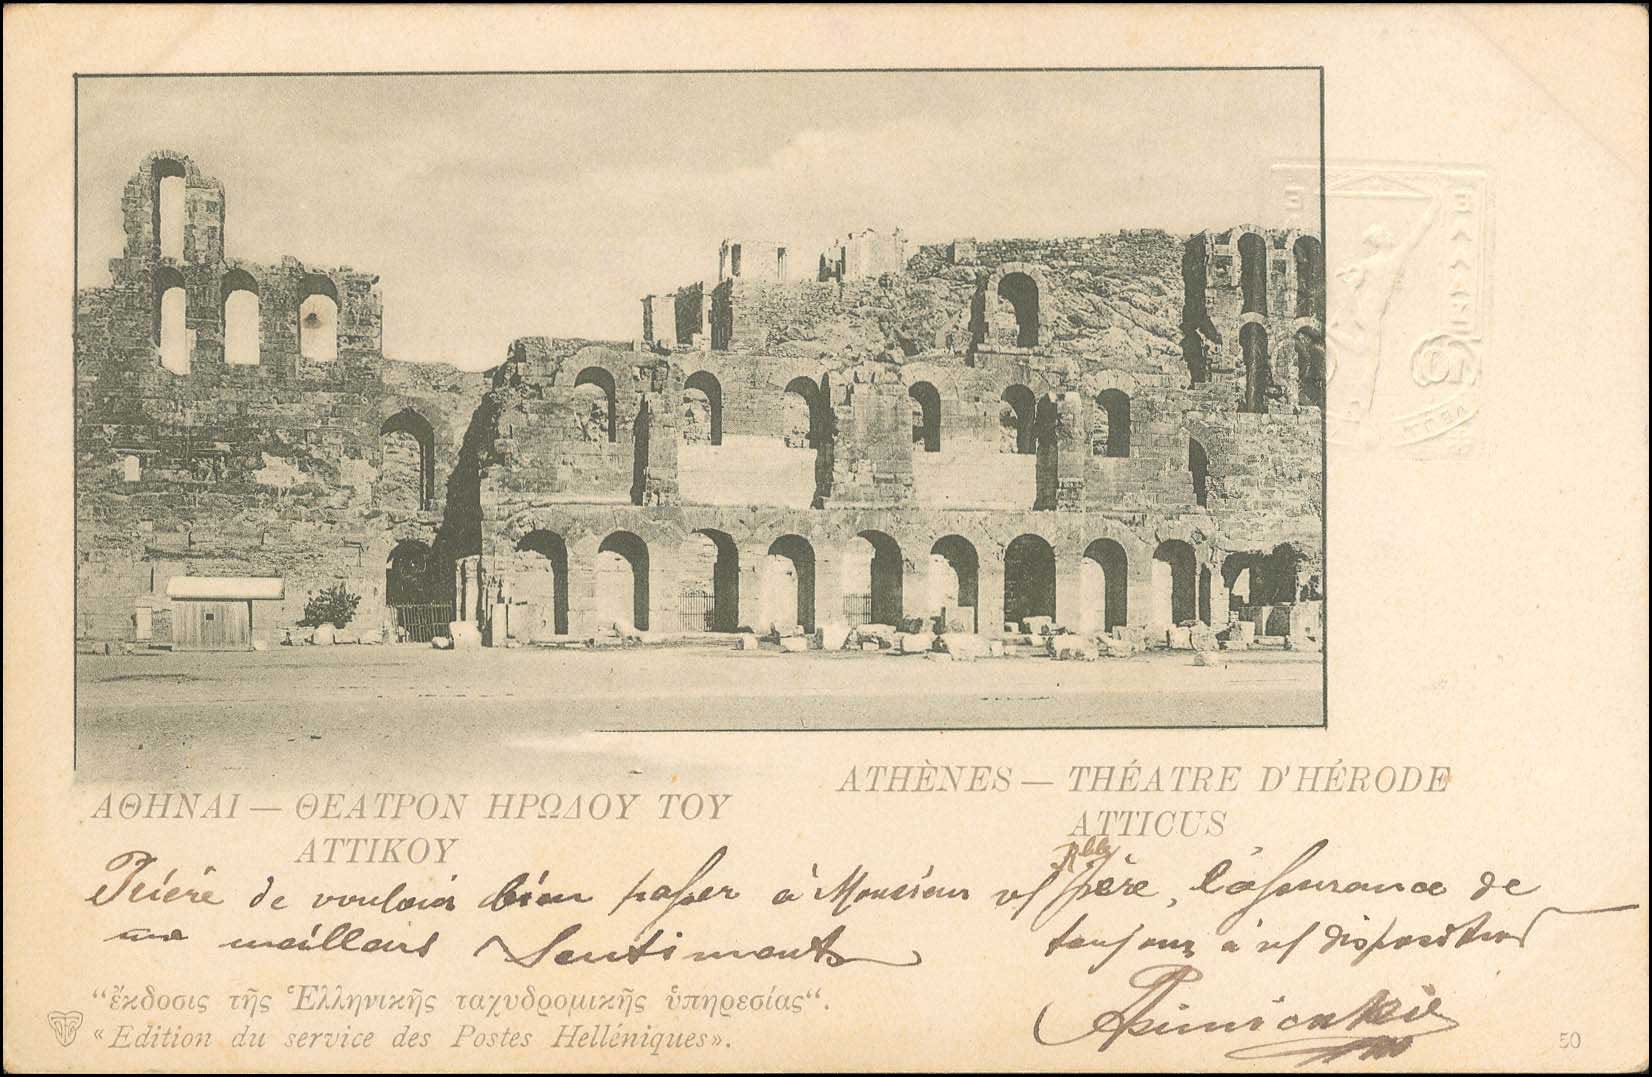 ΑΘΗΝΑΙ — ΘΕΑΤΡΟΝ ΗΡΩΔΟΥ ΤΟΥ
ΑΤΤΙΚΟΥ
ATHÈNES — THÉATRE D'HÉRODE
ATTICUS
Priére de vouloir bien passer à Monsieur vſ père, l'assurance de
meillairs Sentiments toujours à vſ disposition
“ἔκδοσις τῆς Ἑλληνικῆς ταχυδρομικῆς ὑπηρεσίας“.
«Edition du service des Postes Helléniques».
50